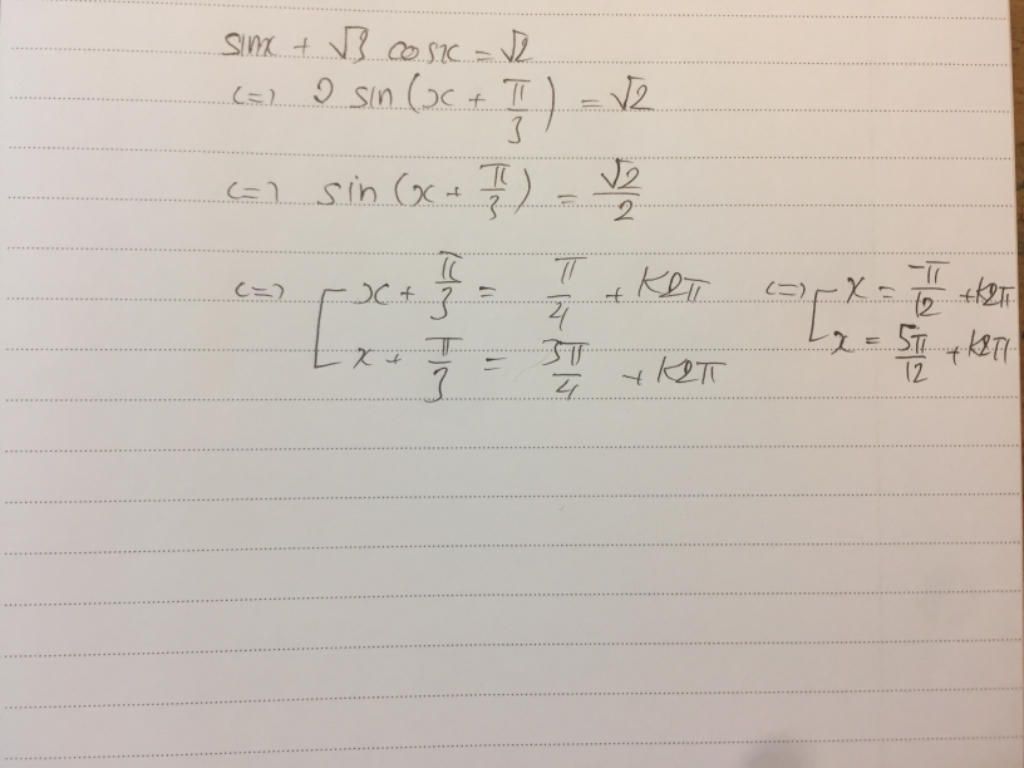 sinx + √3 cosx = √2
<=> 2 sin(x + π/3) = √2
<=> sin(x + π/3) = √2/2
<=> [ x + π/3 = π/4 + K2π <=> [ x = -π/12 + K2π
x + π/3 = 3π/4 + K2π x = 5π/12 + K2π